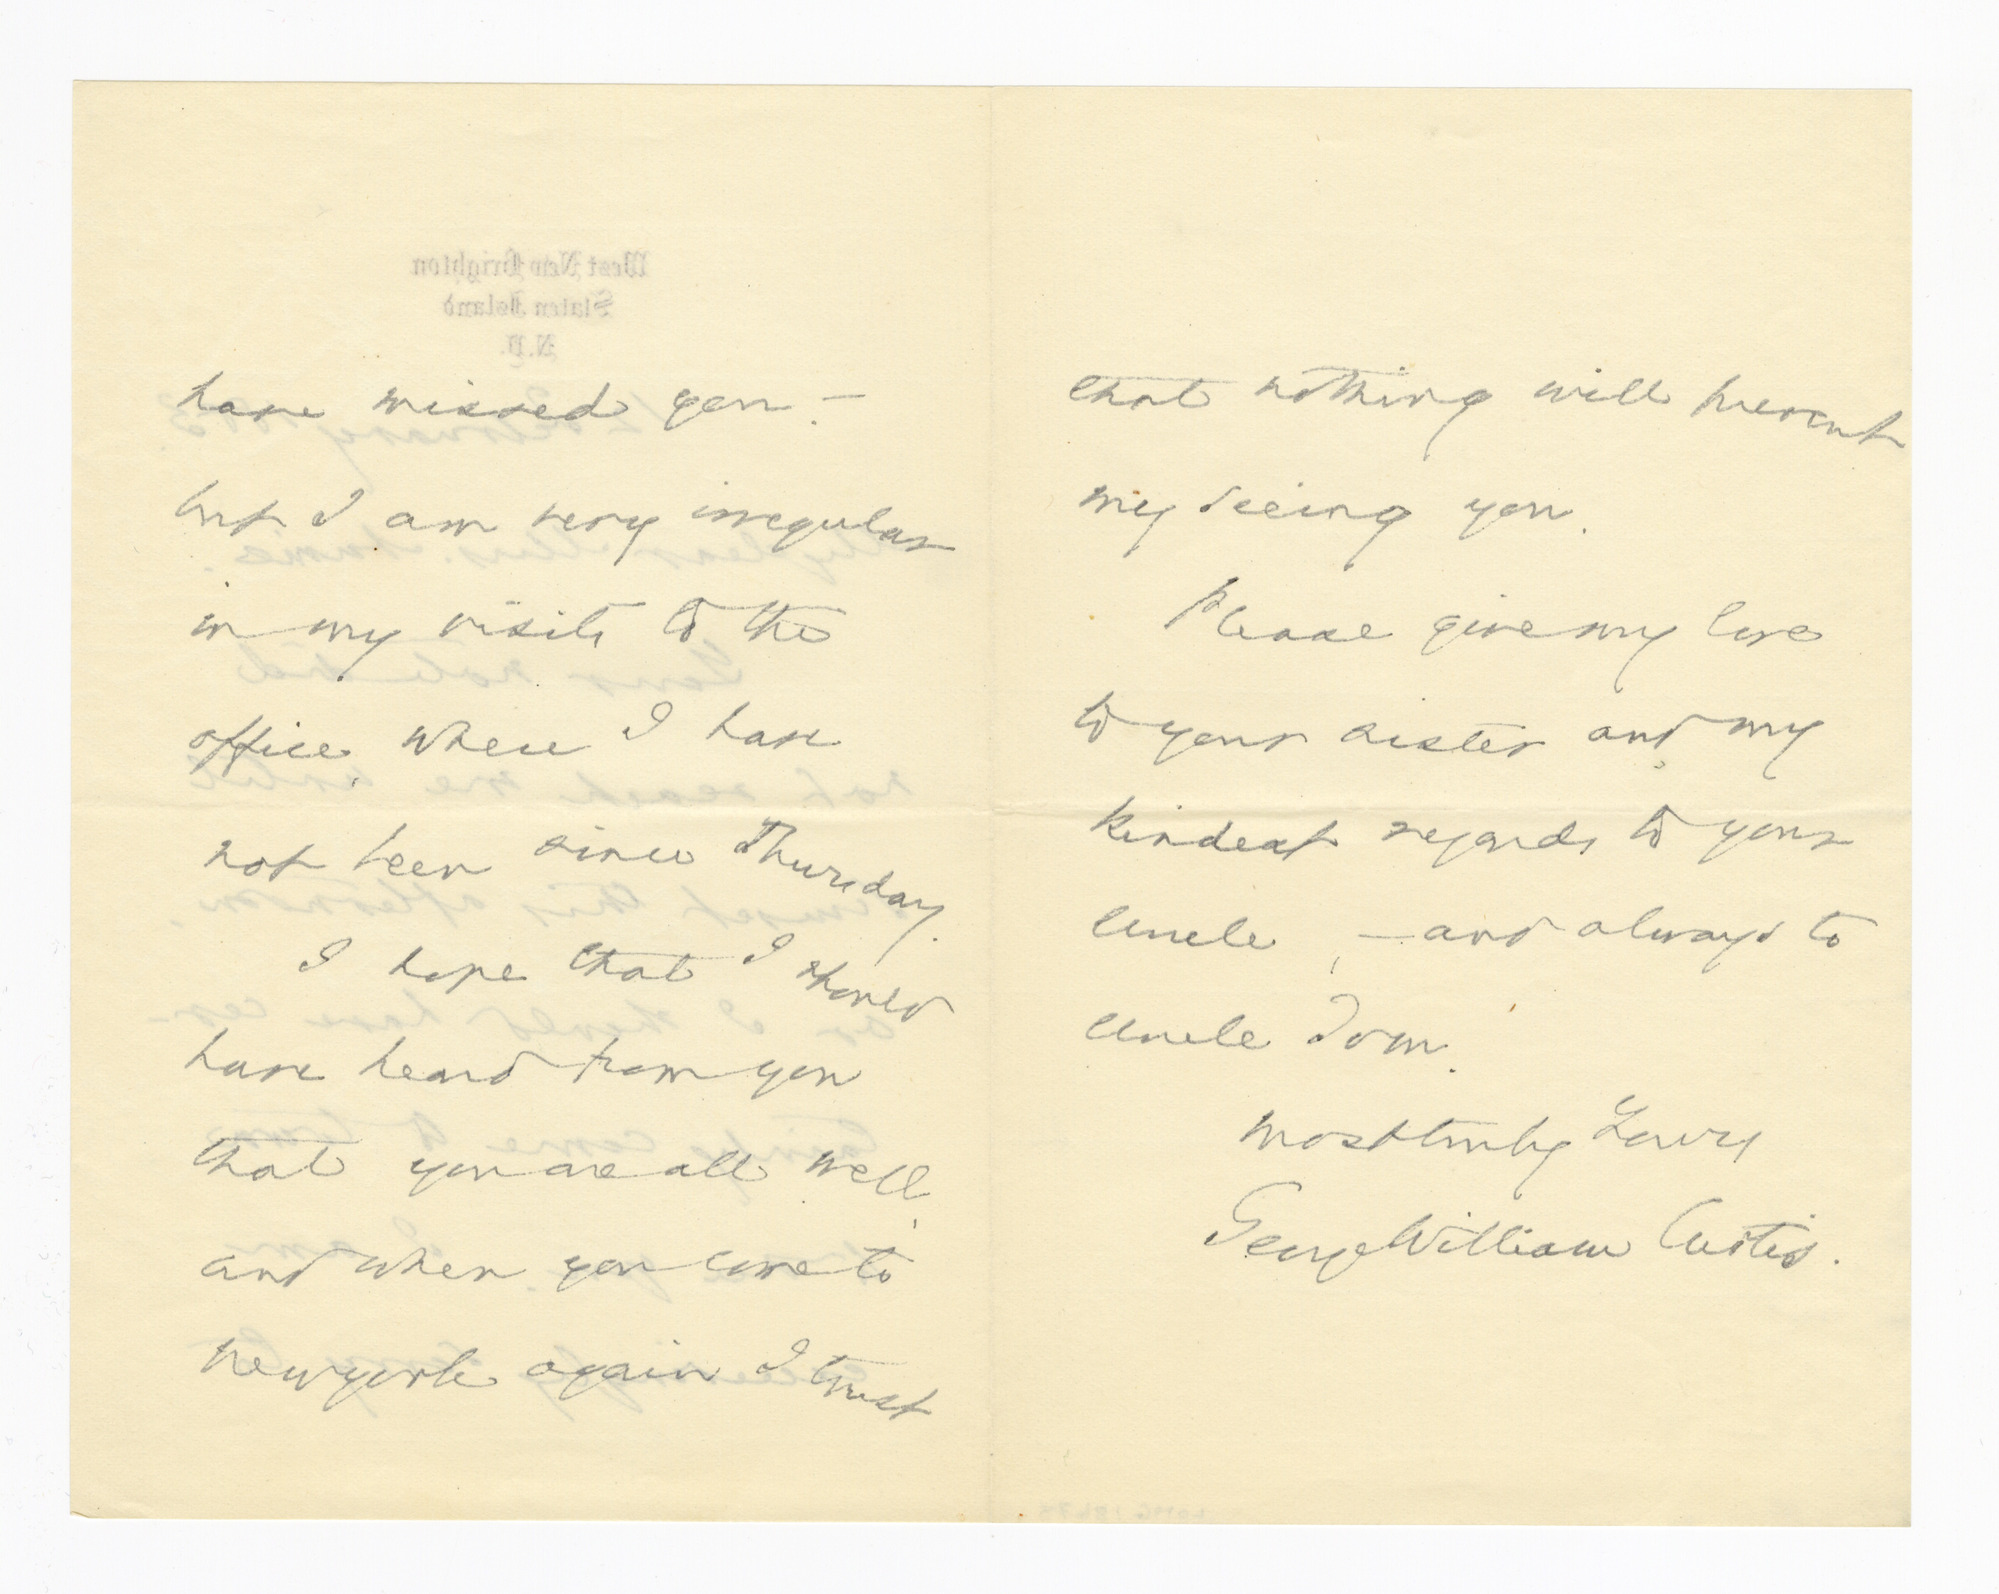 have missed you –
but I am very irregular
in my visits to the
office, where I have
not been since Thursday.
I hope that I should
have heard from you
that you are all well,
and when you come to
New York again I trust
that nothing will prevent
my seeing you.
Please give my love
to your sister and my
kindest regards to your
uncle, – and always to
Uncle Tom.
Most truly Yours
George William Curtis.
West New Brighton
Staten Island
N.Y.